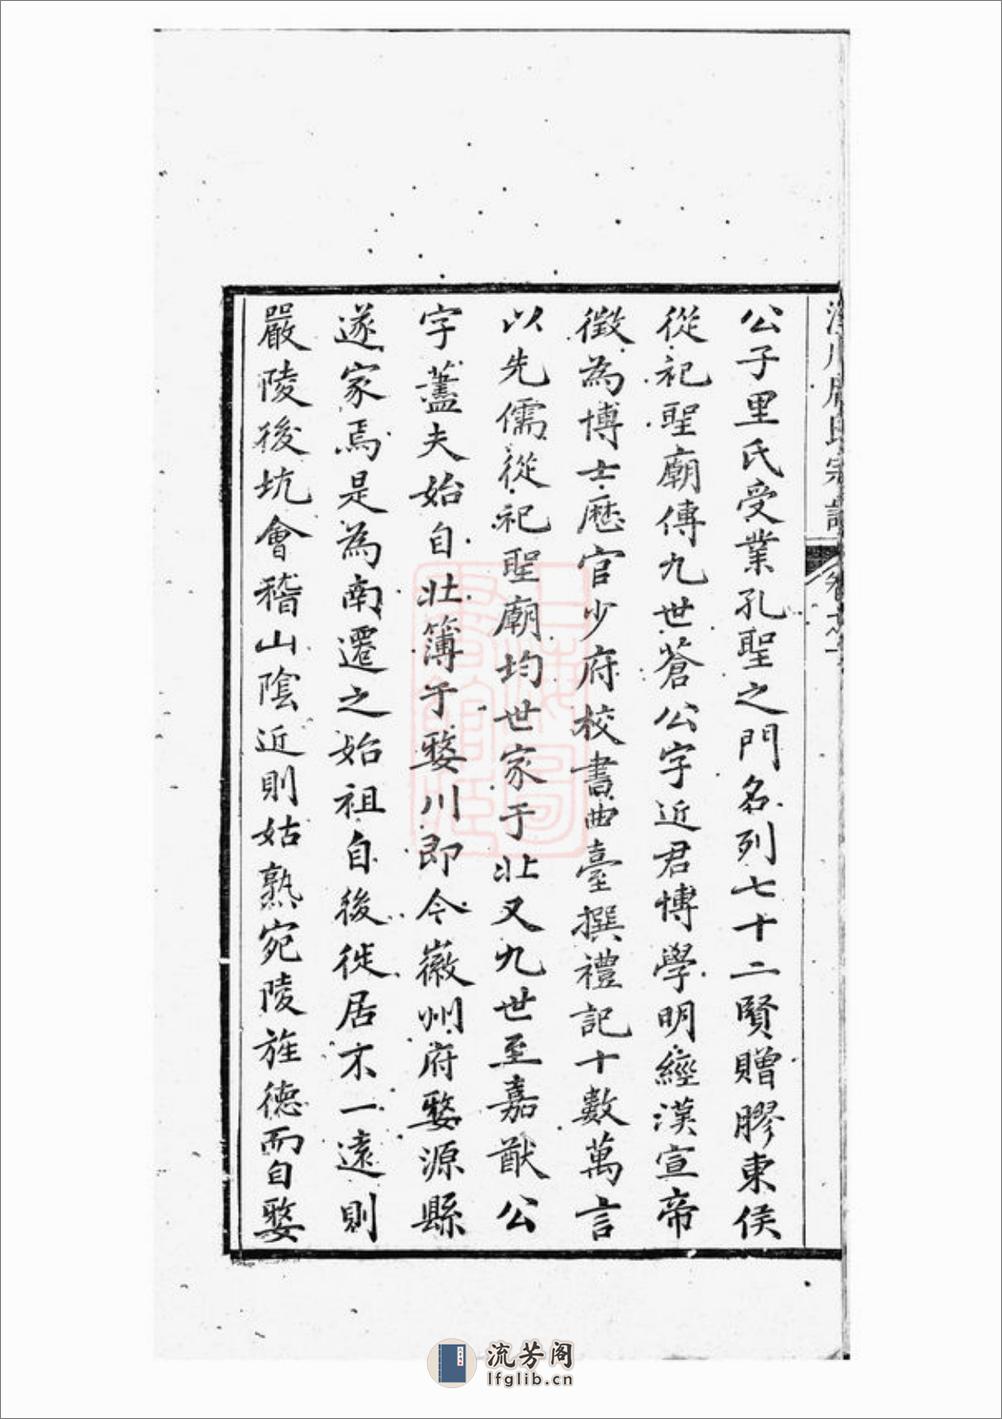 公子里氏受業孔聖之門名列七十二賢贈膠東侯
從祀聖廟傳九世蒼公字近君博學明經漢宣帝
徵為博士歷官少府校書曲臺撰禮記十數萬言
以先儒從祀聖廟均世家于北又九世至嘉猷公
字藎夫始自北簿于婺川即今徽州府婺源縣
遂家焉是為南遷之始祖自後徙居不一遠則
嚴陵後坑會稽山陰近則姑熟宛陵旌德而自婺
流芳阁
lfglib.cn